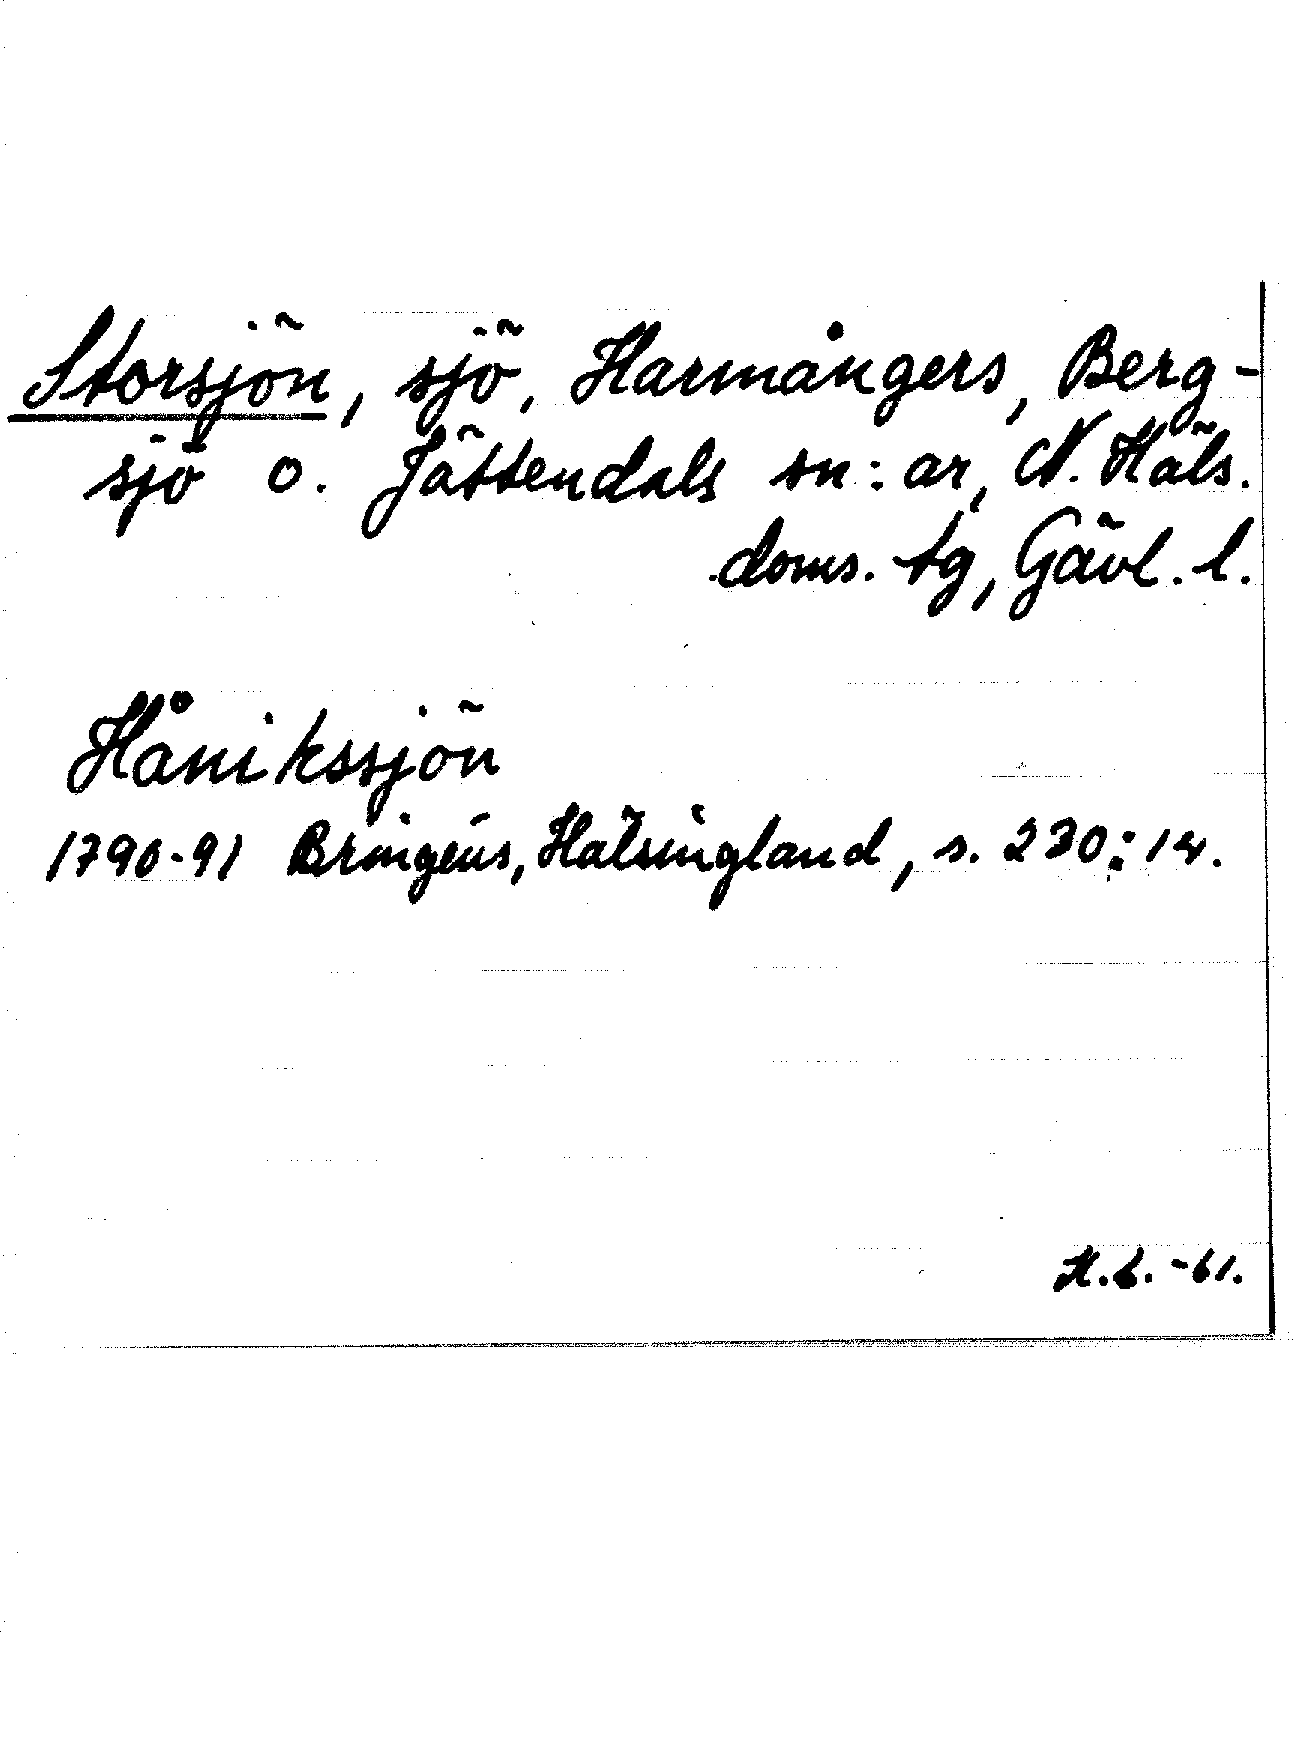 Storsjön, sjö, Harmångers, Berg-
sjö o. Jättendals sn:ar, N. Häls.
doms. tg, Gävl. l.
Hånikssjön
1790-91 Bringéus, Hälsingland, s. 230:14.
-61.